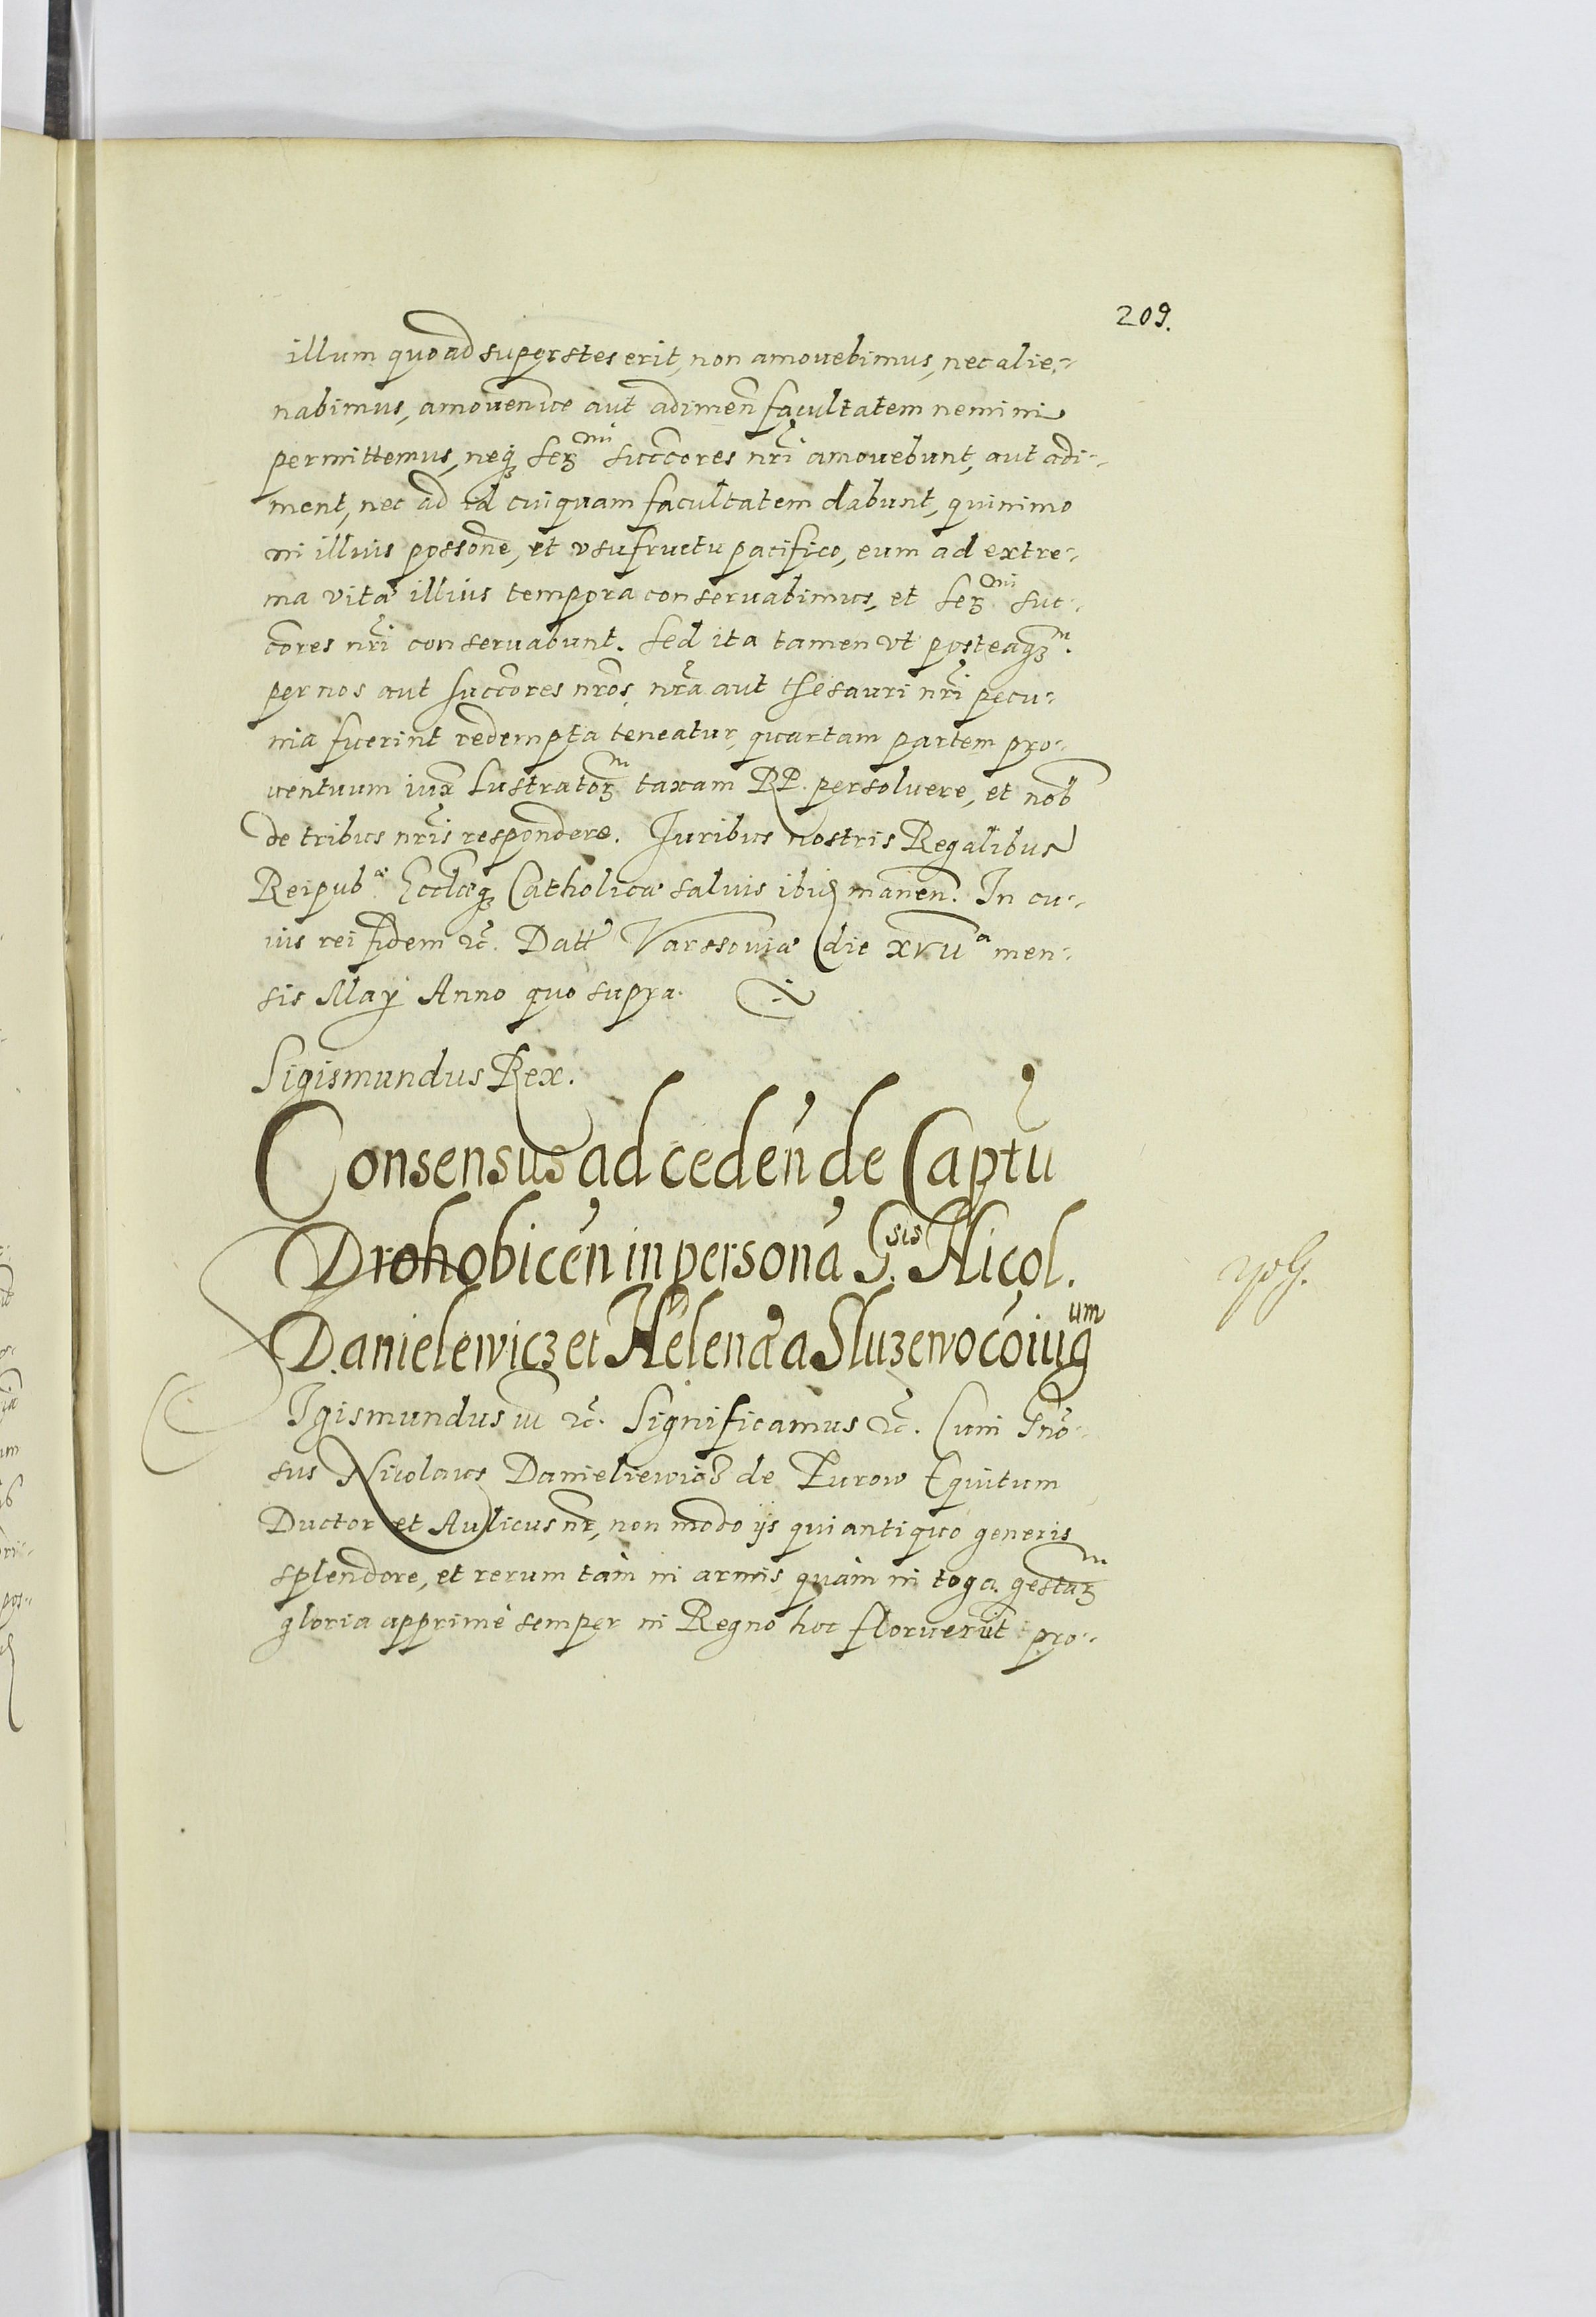 209.
illum quoad superstes erit, non amouebimus, nec alie-
nabimus, amouendive aut adimen̄ facultatem nemini
permittemus, neq₃ Serᵐⁱ succores nr̄i amouebunt, aut adi-
ment, nec ad id cuiquam facultatem dabunt, quinimo
in illius possōne, et vsufructu pacifico, eum ad extre-
ma vitæ illius tempora conseruabimus, et Serᵐⁱ suc-
cores nr̄i conseruabunt. Sed ita tamen vt posteaq₃ᵐ.
per nos aut succores nr̄os, nr̄a aut thesauri nr̄i pecu-
nia fuerint redempta teneatur, quartam partem pro-
uentuum iux̄ Lustrator₃ᵐ taxam RP. persoluere, et nob̄
de tribus nr̄is respondere. Juribus nostris Regalibus
Reipubᵃᵉ Eccl̄æq₃ Catholicæ saluis ibid manen̄. In cu-
ius rei fidem &c̄. Datt Varssouiæ die xvııᵃ men-
sis May Anno quo supra.
Sigismundus Rex.
Consensus ad ceden̄ de Captū
Drohobicen̄ in personā G.ˢⁱˢ Nicol.
Danielewicz et Helenæ a Sluzewo cōiugᵘᵐ
Igismundus III &c̄. Significamus &c̄. Cum Gn̄o-
sus Nicolaus Danieliewicz de Zurow Equitum
Ductor et Aulicus nr̄, non modo ijs qui antiquo generis
splendore, et rerum tam in armis quàm in toga gestar₃ᵐ
gloria apprimè semper in Regno hoc floruerūt pro-